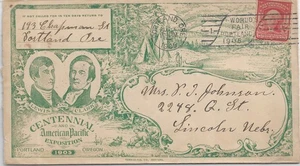 IF NOT CALLED FOR IN TEN DAYS RETURN TO
193 Chapman St
Portland Ore
WORLD'S
FAIR
PORTLAND
1905
LEWIS AND CLARK
CENTENNIAL
AND
American Pacific
EXPOSITION
PORTLAND 1905 OREGON
Mrs. S. T. Johnson.
2274 O. St.
Lincoln Nebr.